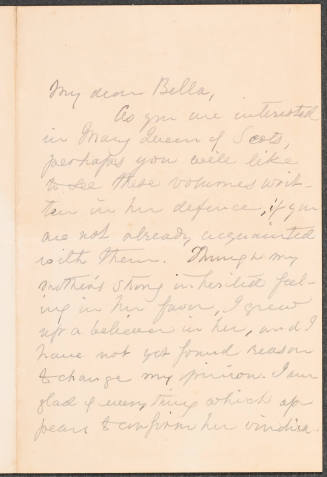 My dear Bella,
As you are interested
in Mary Queen of Scots,
perhaps you will like
to see these volumes writ-
ten in her defence, if you
are not already acquainted
with them. Through my
mother's strong inherited feel-
ing in her favor, I grew
up a believer in her, and I
have not yet found reason
to change my opinion. I am
glad of everything which ap-
pears to confirm her vindica-